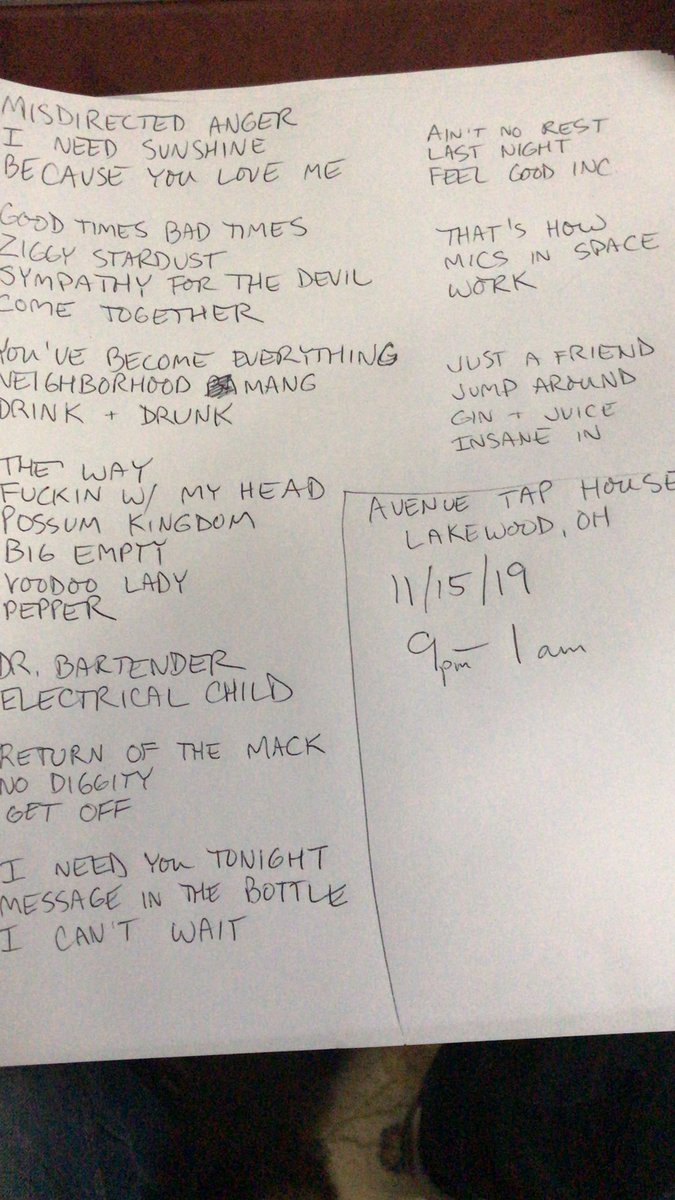 MISDIRECTED ANGER
I NEED SUNSHINE
BECAUSE YOU LOVE ME
GOOD TIMES BAD TIMES
ZIGGY STARDUST
SYMPATHY FOR THE DEVIL
COME TOGETHER
YOU'VE BECOME EVERYTHING
NEIGHBORHOOD MANG
DRINK + DRUNK
THE WAY
FUCKIN W/ MY HEAD
POSSUM KINGDOM
BIG EMPTY
VOODOO LADY
PEPPER
DR. BARTENDER
ELECTRICAL CHILD
RETURN OF THE MACK
NO DIGGITY
GET OFF
I NEED YOU TONIGHT
MESSAGE IN THE BOTTLE
I CAN'T WAIT
AIN'T NO REST
LAST NIGHT
FEEL GOOD INC
THAT'S HOW
MICS IN SPACE
WORK
JUST A FRIEND
JUMP AROUND
GIN + JUICE
INSANE IN
AVENUE TAP HOUSE
LAKEWOOD, OH
11/15/19
9pm - 1am